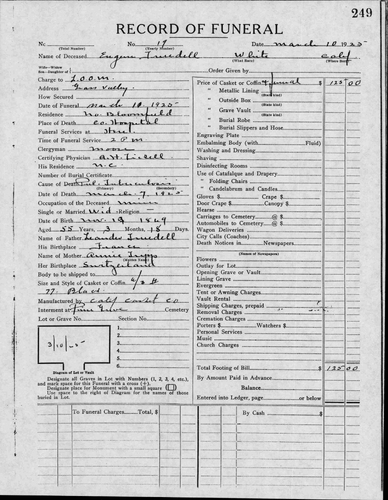 249
RECORD OF FUNERAL
No. 17 Date March 10 1925
(Yearly Number)
Name of Deceased Eugene Truedell White Calif
Wife—Widow
Son—Daughter of
Order Given by
Charge to I.O.O.M.
Address Grass Valley
How Secured
Date of Funeral March 10, 1925
Residence No. Bloomfield
Place of Death Co. Hospital
Funeral Services at
Time of Service 2 P.M.
Clergyman Moose
Certifying Physician
His Residence N.C.
Number of Burial Certificate
Cause of Death Pul. Tuberculosis
Date of Death March 7, 1925
Occupation of the Deceased Miner
Single or Married Wid. Religion -
Date of Birth Nov. 19 1869
Aged 55 Years 3 Months 18 Days
Name of Father Leander Truedell
His Birthplace France
Name of Mother Annie Tripp
Her Birthplace Switzerland
Body to be shipped to
Size and Style of Casket or Coffin 6/3
Black
Manufactured by Calif Casket Co
Interment at Pine Grove Cemetery
Lot or Grave No. Section No.
1
2
3
4
5
6
3/10-25
Diagram of Lot or Vault
Designate all Graves in Lot with Numbers (1, 2, 3, 4, etc.), and mark space for this Funeral with a cross (+).
Designate place for Monument with a small square (□)
Use space to the right of Diagram for the names of those buried in Lot.
Price of Casket or Coffin Funeral $ 125 00
" Metallic Lining
" Outside Box
" Grave Vault
" Burial Robe
" Burial Slippers and Hose
Engraving Plate
Embalming Body (with Fluid)
Washing and Dressing
Shaving
Disinfecting Rooms
Use of Catafalque and Drapery
" Folding Chairs
" Candelabrum and Candles
Gloves $ Crape $
Door Crape $ Canopy $
Hearse
Carriages to Cemetery @ $
Automobiles to Cemetery @ $
Wagon Deliveries
City Calls (Coaches)
Death Notices in Newspapers
(Names of Newspapers)
Flowers
Outlay for Lot
Opening Grave or Vault
Lining Grave
Evergreen
Tent or Awning Charges
Vault Rental
Shipping Charges, prepaid
Removal Charges
Cremation Charges
Porters $ Watchers $
Personal Services
Music
Church Charges
Total Footing of Bill $ 125 00
By Amount Paid in Advance
Balance
Entered into Ledger, page or below
To Funeral Charges Total, $
By Cash $